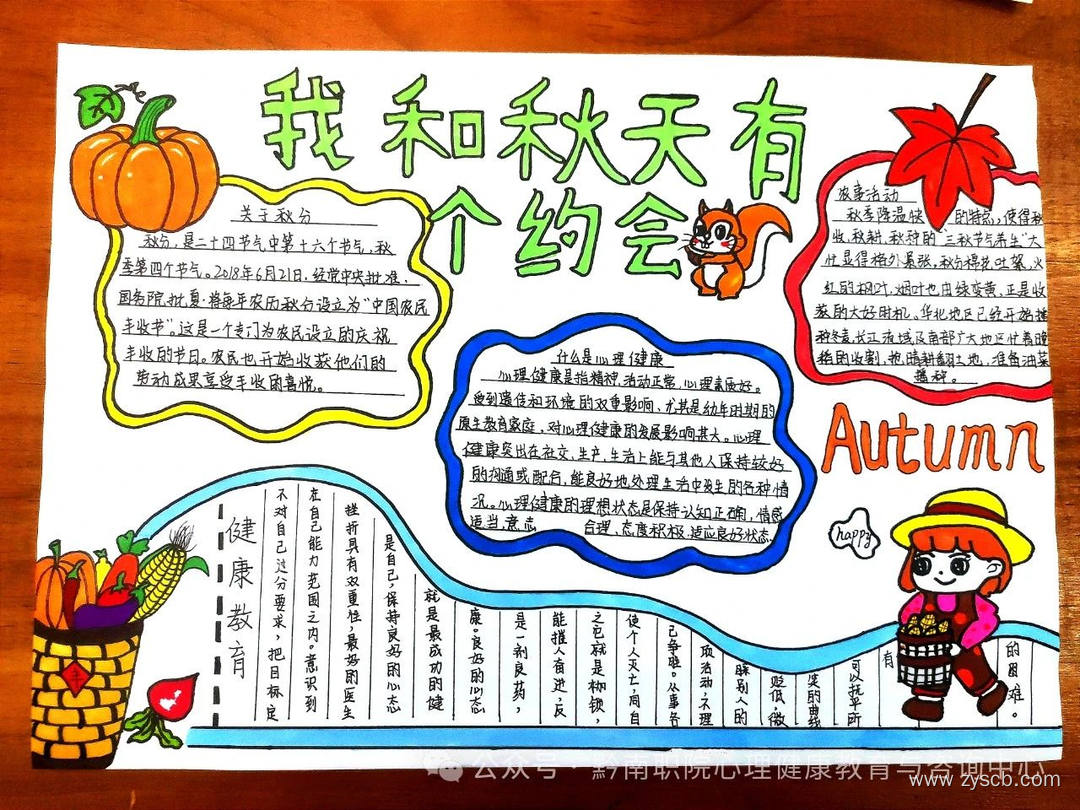 我和秋天有
个约会
关于秋分
秋分,是二十四节气中第十六个节气,秋
季第四个节气。2018年6月21日,经党中央批准、
国务院批复.将每年农历秋分设立为“中国农民
丰收节”,这是一个专门为农民设立的庆祝
丰收的节日。农民也开始收获他们的
劳动成果享受丰收的喜悦。
农事活动
秋季降温快 的特点,使得秋
收,秋耕,秋种的“三秋节气养生”大
忙显得格外紧张,秋分棉花吐絮,
红的 叶,烟叶也由绿变黄,正是收
获的大好时机,华北地区已经开始播
种冬麦,长江流域及南部广大地区忙着晚
稻的收割,抢晴耕翻土地,准备油菜
播种。
什么是心理健康
心理健康是指精神.活动正常、心理素质好。
受到遗传和环境的双重影响,尤其是幼年时期的
原生教育家庭,对心理健康的发展影响甚大。心理
健康突出在社交、生产、生活上能与其他人保持较好
的沟通或配合,能良好地处理生活中发生的各种情
况。心理健康的理想状态是保持认知正确,情感
适当、意志 合理、态度积极、适应良好状态.
Autumn
happy
丰
健康教育
不对自己过分要求,把目标定
在自己能力范围之内。意识到
挫折具有双重性,最好的医生
是自己,保持良好的心态
就是最成功的健
康。良好的心态
是一剂良药,
能催人奋进,反
之它就是枷锁,
使个人灭亡,同自
己争吵。从事各
项活动,不理
睬别人的
贬低,微
笑的曲线
可以抚平所
有
的困难。
公众号·黔南职院心理健康教育与咨询中心
www.zyscb.com